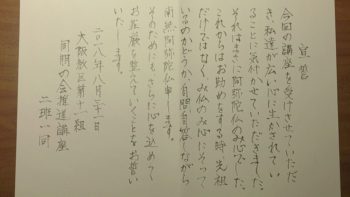 宣誓
今回の講座を受けさせていただ
き、私達が広い心に生かされてい
ることに気付かせていただきました。
それはまさに阿弥陀仏のみ心でした。
これからはお勤めをする時、先祖
だけではなく、み仏のみ心にそって
いるのかどうか、自問自答しながら
南無阿弥陀仏申します。
そのためにもさらに心を込めて
お荘厳を整えていくことをお誓い
いたします。
二〇一八年八月三十一日
大阪教区第十一組
同朋の会推進講座
二班一同